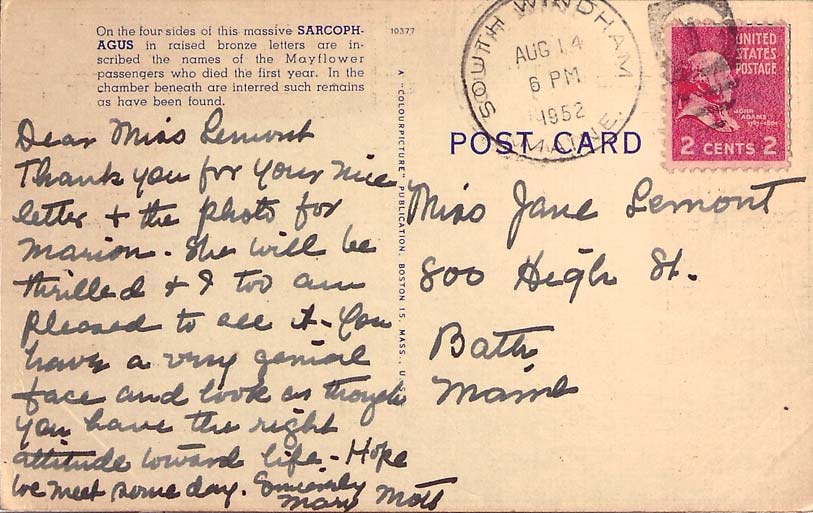 On the four sides of this massive SARCOPH-
AGUS in raised bronze letters are in-
scribed the names of the Mayflower
passengers who died the first year. In the
chamber beneath are interred such remains
as have been found.
Dear Miss Lemont
Thank you for your nice
letter + the photo for
Marion. She will be
thrilled + I too am
pleased to see it - You
have a very genial
face and look as though
you have the right
attitude toward life - Hope
we meet some day. Sincerely
Mary Mott
10377
A "COLOURPICTURE" PUBLICATION, BOSTON 15, MASS., U.S.A.
SOUTH WINDHAM
AUG 14
6 PM
1952
MAINE.
UNITED
STATES
POSTAGE
JOHN
ADAMS
1797-1801
2 CENTS 2
POST CARD
Miss Jane Lemont
800 High St.
Bath
Maine